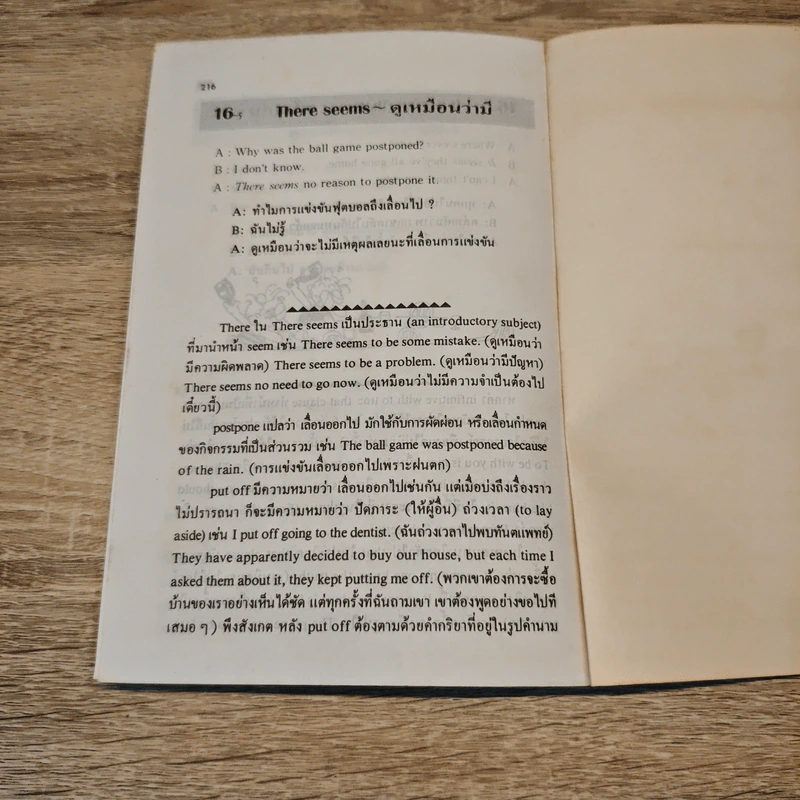 216
16-5 There seems~ ดูเหมือนว่ามี
A : Why was the ball game postponed?
B : I don't know.
A : There seems no reason to postpone it.
A: ทำไมการแข่งขันฟุตบอลถึงเลื่อนไป ?
B: ฉันไม่รู้
A: ดูเหมือนว่าจะไม่มีเหตุผลเลยนะที่เลื่อนการแข่งขัน
There ใน There seems เป็นประธาน (an introductory subject)
ที่มานำหน้า seem เช่น There seems to be some mistake. (ดูเหมือนว่า
มีความผิดพลาด) There seems to be a problem. (ดูเหมือนว่ามีปัญหา)
There seems no need to go now. (ดูเหมือนว่าไม่มีความจำเป็นต้องไป
เดี๋ยวนี้)
postpone แปลว่า เลื่อนออกไป มักใช้กับการผัดผ่อน หรือเลื่อนกำหนด
ของกิจกรรมที่เป็นส่วนรวม เช่น The ball game was postponed because
of the rain. (การแข่งขันเลื่อนออกไปเพราะฝนตก)
put off มีความหมายว่า เลื่อนออกไปเช่นกัน แต่เมื่อบ่งถึงเรื่องราว
ไม่ปรารถนา ก็จะมีความหมายว่า ปัดภาระ (ให้ผู้อื่น) ถ่วงเวลา (to lay
aside) เช่น I put off going to the dentist. (ฉันถ่วงเวลาไปพบทันตแพทย์)
They have apparently decided to buy our house, but each time I
asked them about it, they kept putting me off. (พวกเขาต้องการจะซื้อ
บ้านของเราอย่างเห็นได้ชัด แต่ทุกครั้งที่ฉันถามเขา เขาต้องพูดอย่างขอไปที
เสมอ ๆ ) พึงสังเกต หลัง put off ต้องตามด้วยคำกริยาที่อยู่ในรูปคำนาม